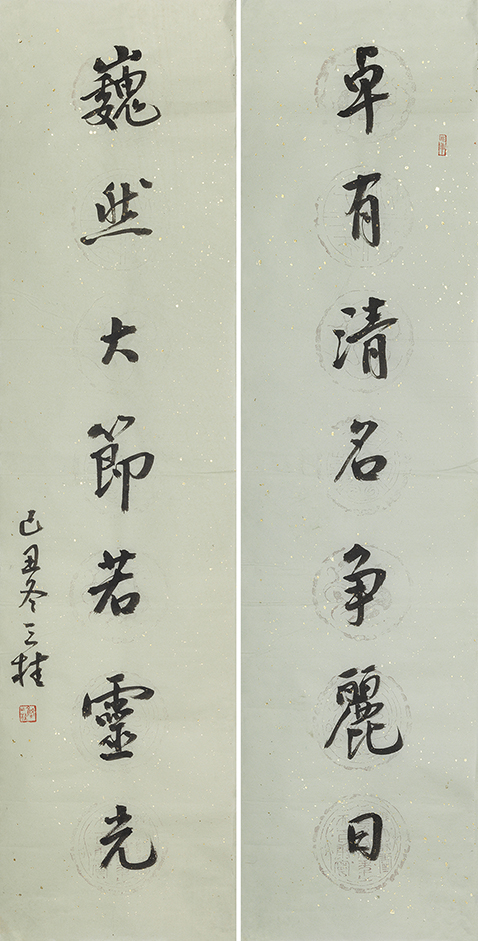 卓有清名争麗日
巍然大節若靈光
己丑冬三桂